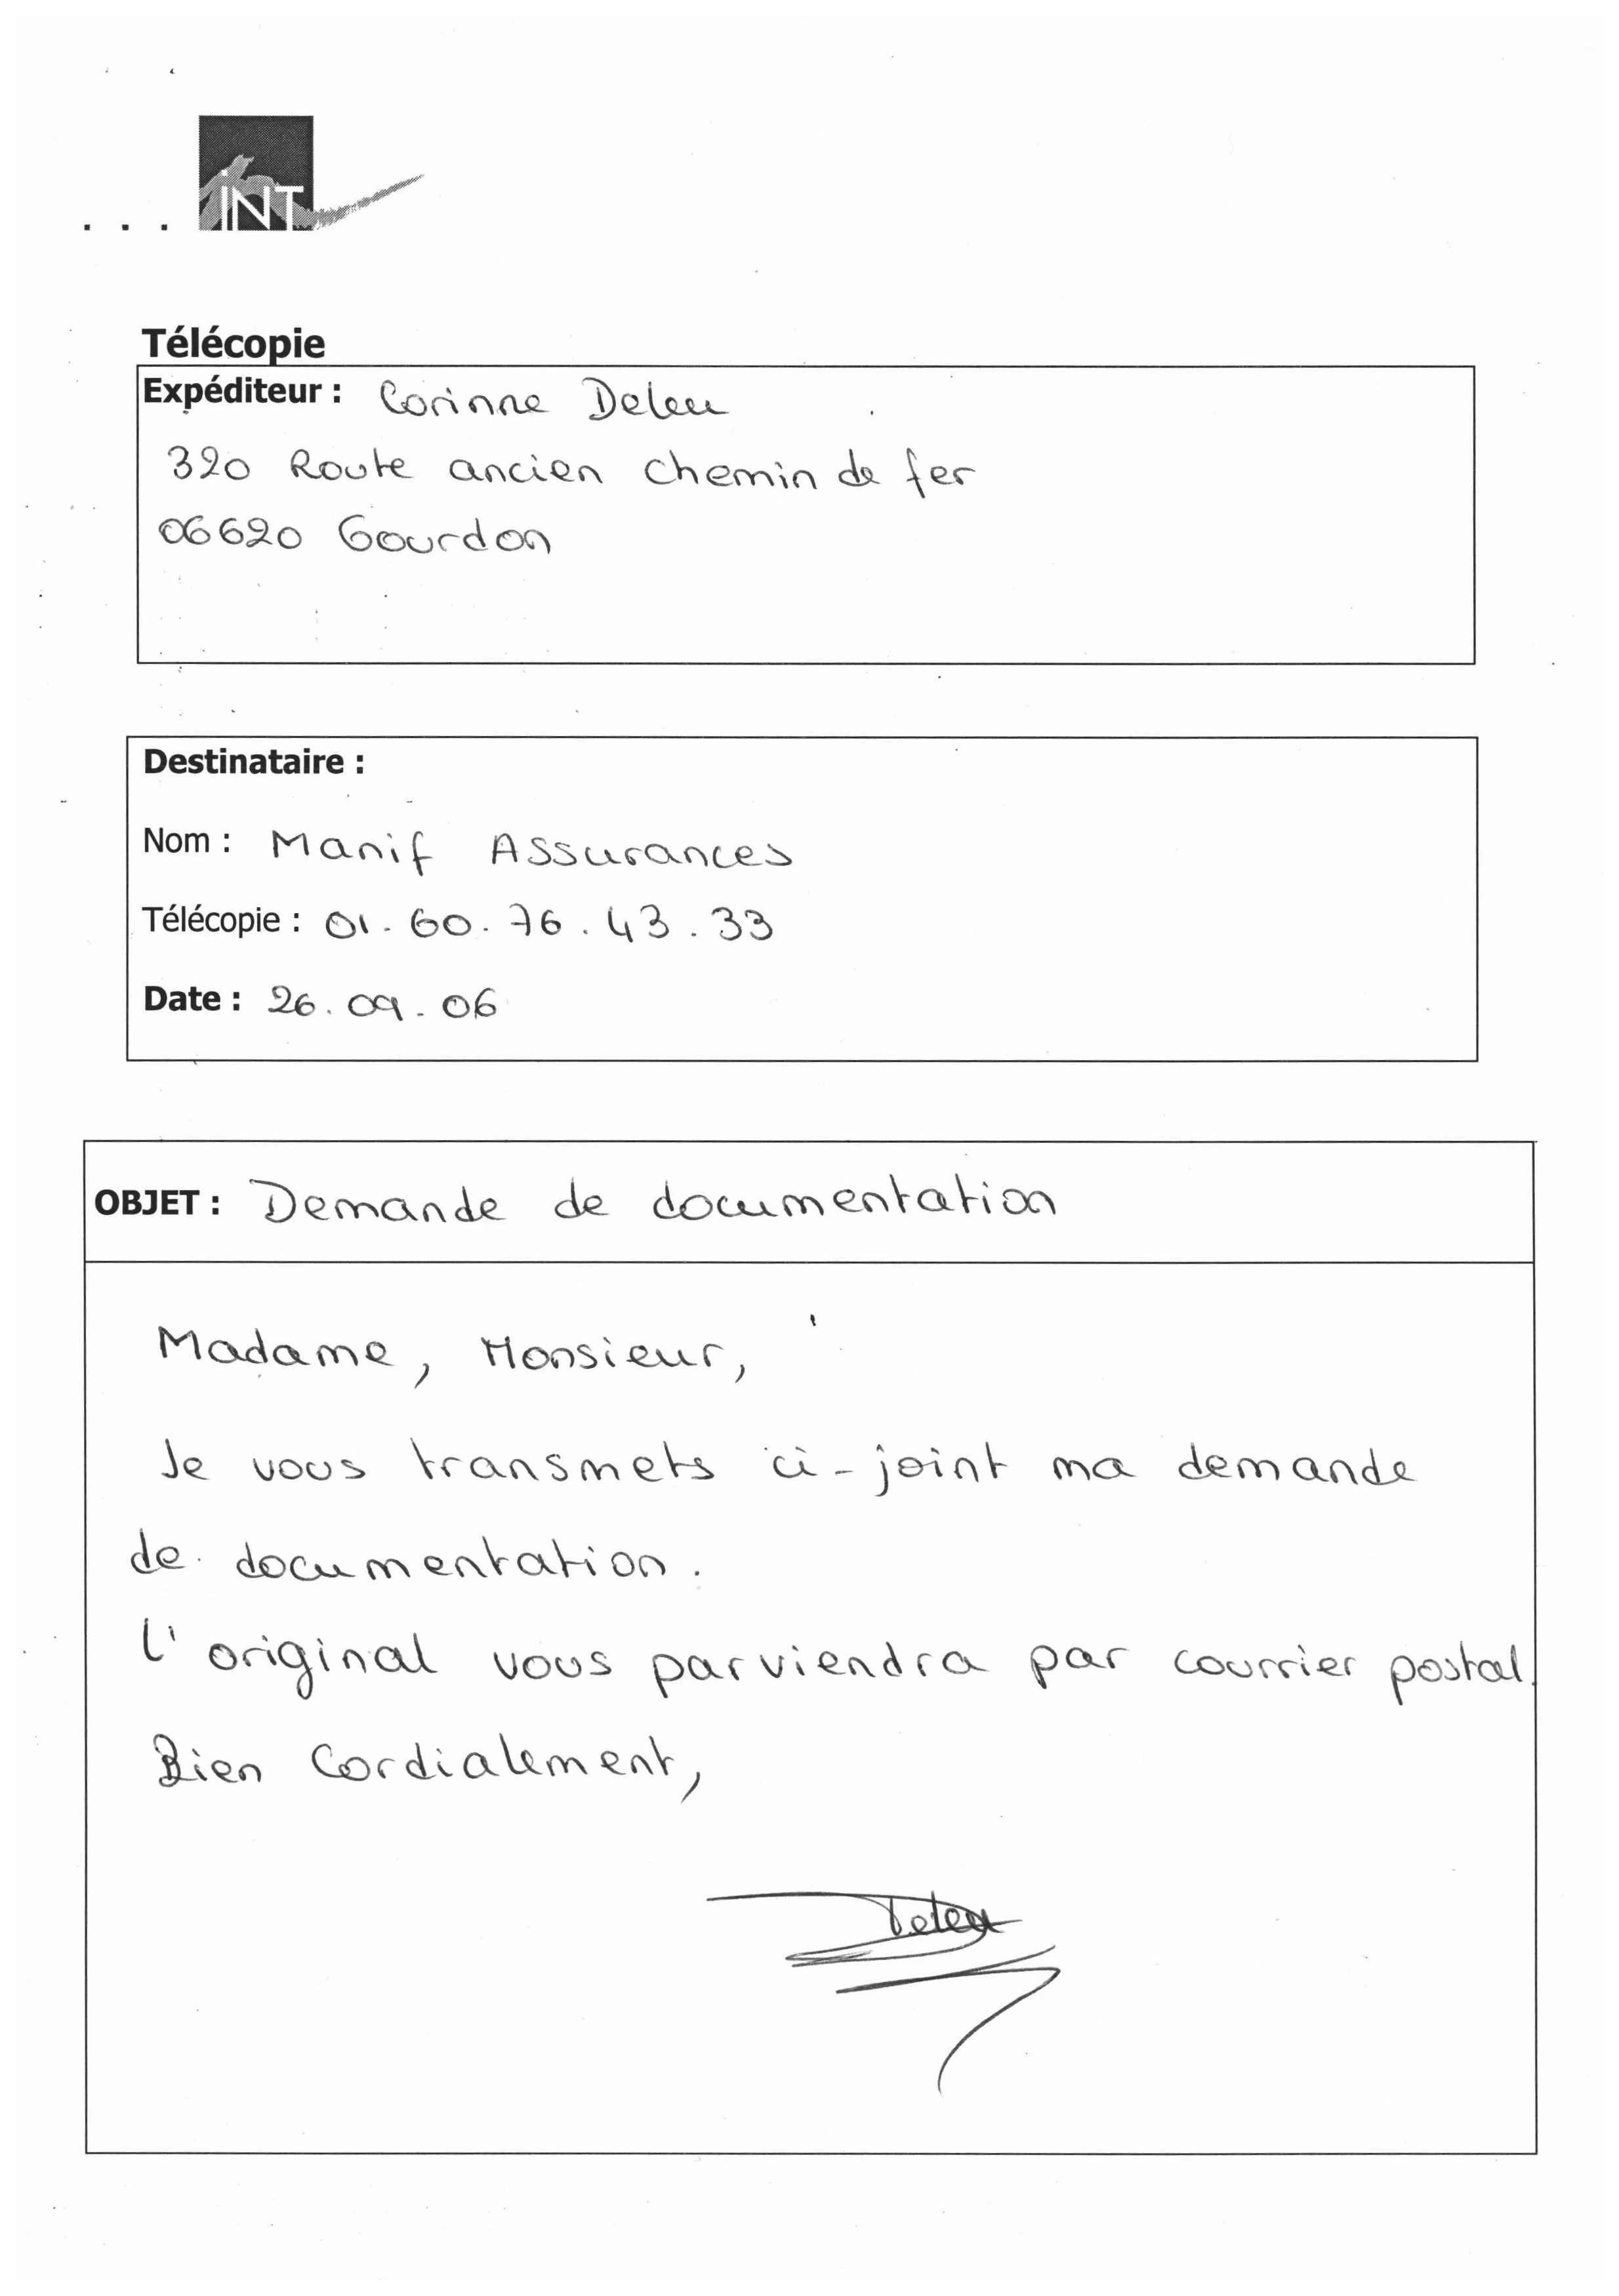 ... INT
Télécopie
Expéditeur : Corinne Deleu
320 Route ancien chemin de fer
06620 Gourdon
Destinataire :
Nom : Manif Assurances
Télécopie : 01.60.76.43.33
Date : 26.09.06
OBJET : Demande de documentation
Madame, Monsieur,
Je vous transmets ci-joint ma demande
de documentation.
L'original vous parviendra par courrier postal.
Bien Cordialement,
Deleu